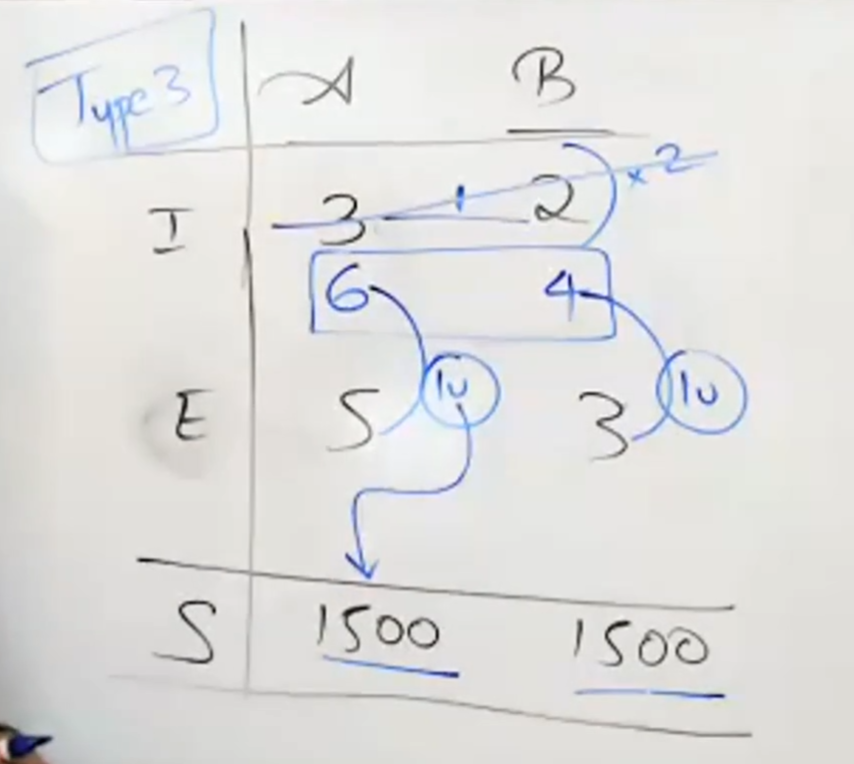 Type 3
A B
I 3 2 ×2
6 4
E 5 1u 3 1u
S 1500 1500